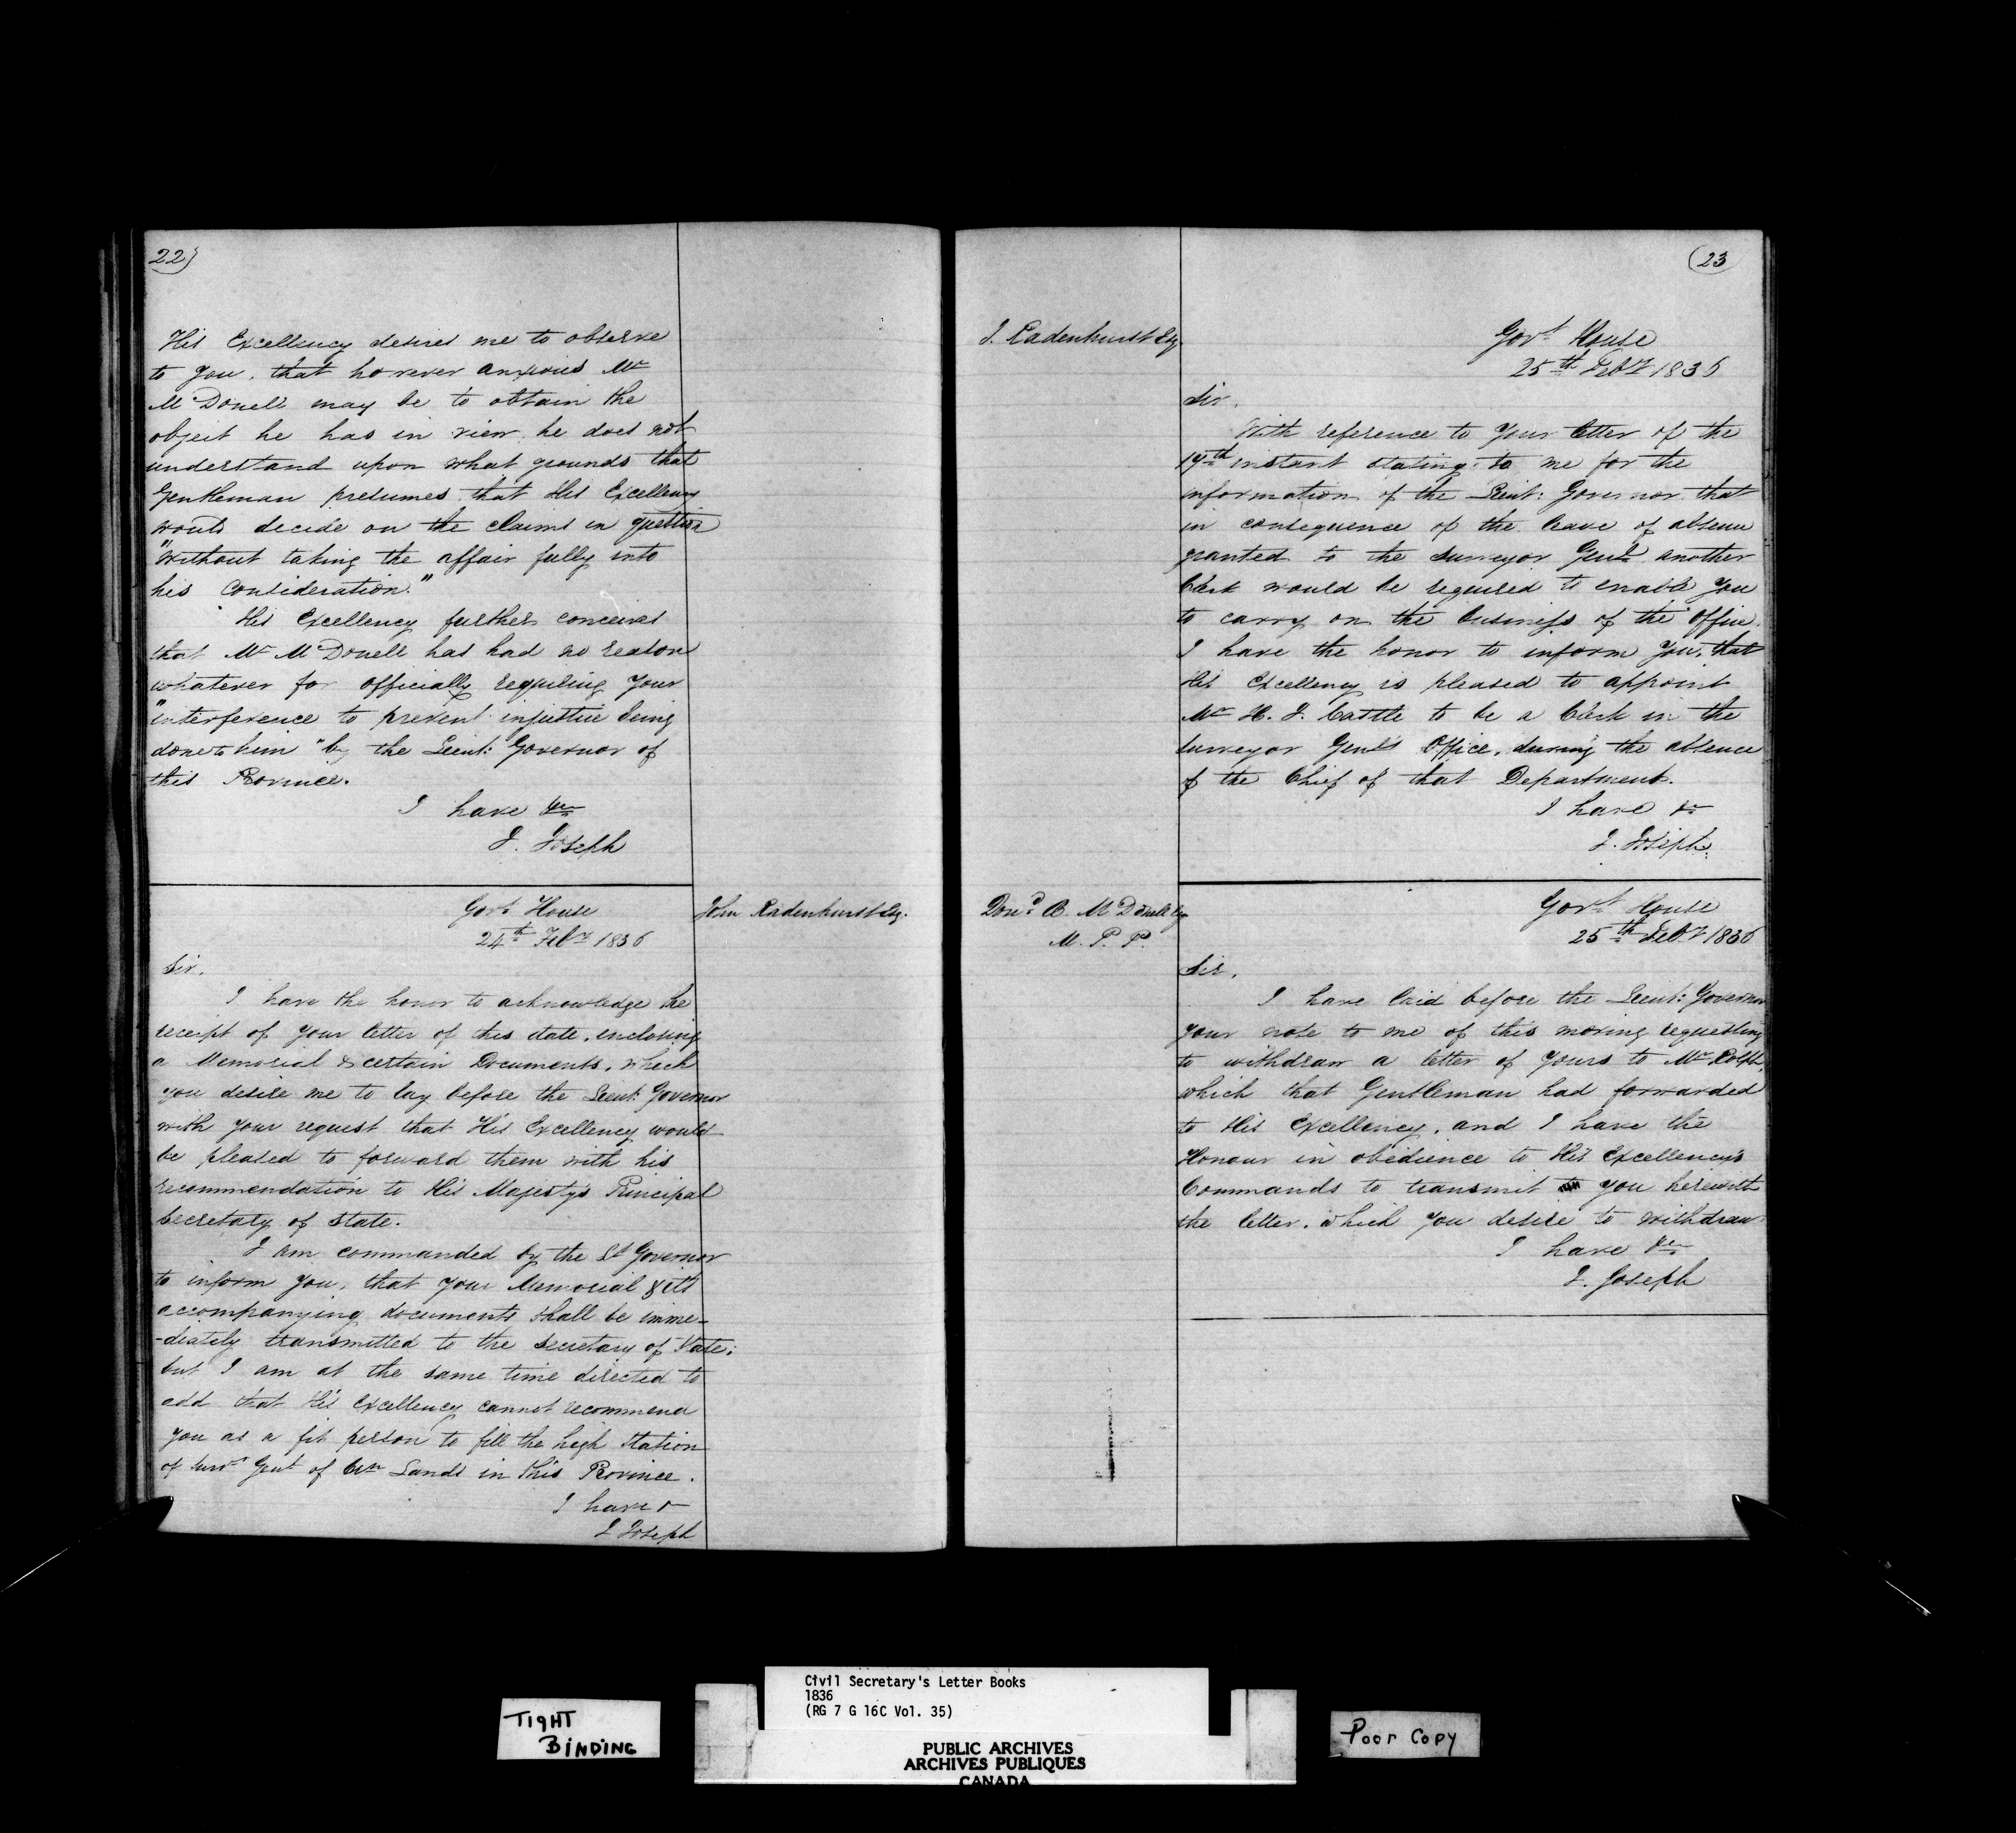 22)
His Excellency desires me to observe
to you, that however anxious Mr
McDonell may be to obtain the
object he has in view, he does not
understand upon what grounds that
Gentleman presumes that His Excellency
would decide on the claims in question
"without taking the affair fully into
his consideration."
His Excellency further conceives
that Mr McDonell has had no reason
whatever for officially requiring your
"interference to prevent injustice being
done to him" by the Lieut: Governor of
this Province.
I have &c
J. Joseph
John Radenhurst Esq.
Govt House
24th Feby 1836
Sir,
I have the honor to acknowledge the
receipt of your letter of this date, enclosing
a Memorial & certain Documents, which
you desire me to lay before the Lieut: Governor
with your request that His Excellency would
be pleased to forward them with his
recommendation to His Majesty's Principal
Secretary of State.
I am commanded by the Lt Governor
to inform you, that your Memorial & its
accompanying documents shall be imme-
-diately transmitted to the Secretary of State;
but I am at the same time directed to
add that His Excellency cannot recommend
you as a fit person to fill the high Station
of Survr Genl of Crn Lands in this Province.
I have &
J Joseph
(23
J. Radenhurst Esq
Govt House
25th Feby 1836
Sir,
With reference to your letter of the
19th instant stating to me for the
information of the Lieut: Governor that
in consequence of the leave of absence
granted to the Surveyor Genl another
Clerk would be required to enable you
to carry on the business of the Office.
I have the honor to inform you, that
His Excellency is pleased to appoint
Mr H. J. Castle to be a Clerk in the
Surveyor Genl's Office, during the absence
of the Chief of that Department.
I have &c
J. Joseph
Dond Æ. McDonell Esq
M. P. P.
Govt House
25th Feby 1836
Sir,
I have laid before the Lieut: Governor
your note to me of this morning requesting
to withdraw a letter of yours to Mr Rolph,
which that Gentleman had forwarded
to His Excellency, and I have the
Honour in obedience to His Excellency's
Commands to transmit to you herewith
the letter, which you desire to withdraw
I have &c
J. Joseph
TIGHT
BINDING
Civil Secretary's Letter Books
1836
(RG 7 G 16C Vol. 35)
PUBLIC ARCHIVES
ARCHIVES PUBLIQUES
CANADA
Poor Copy